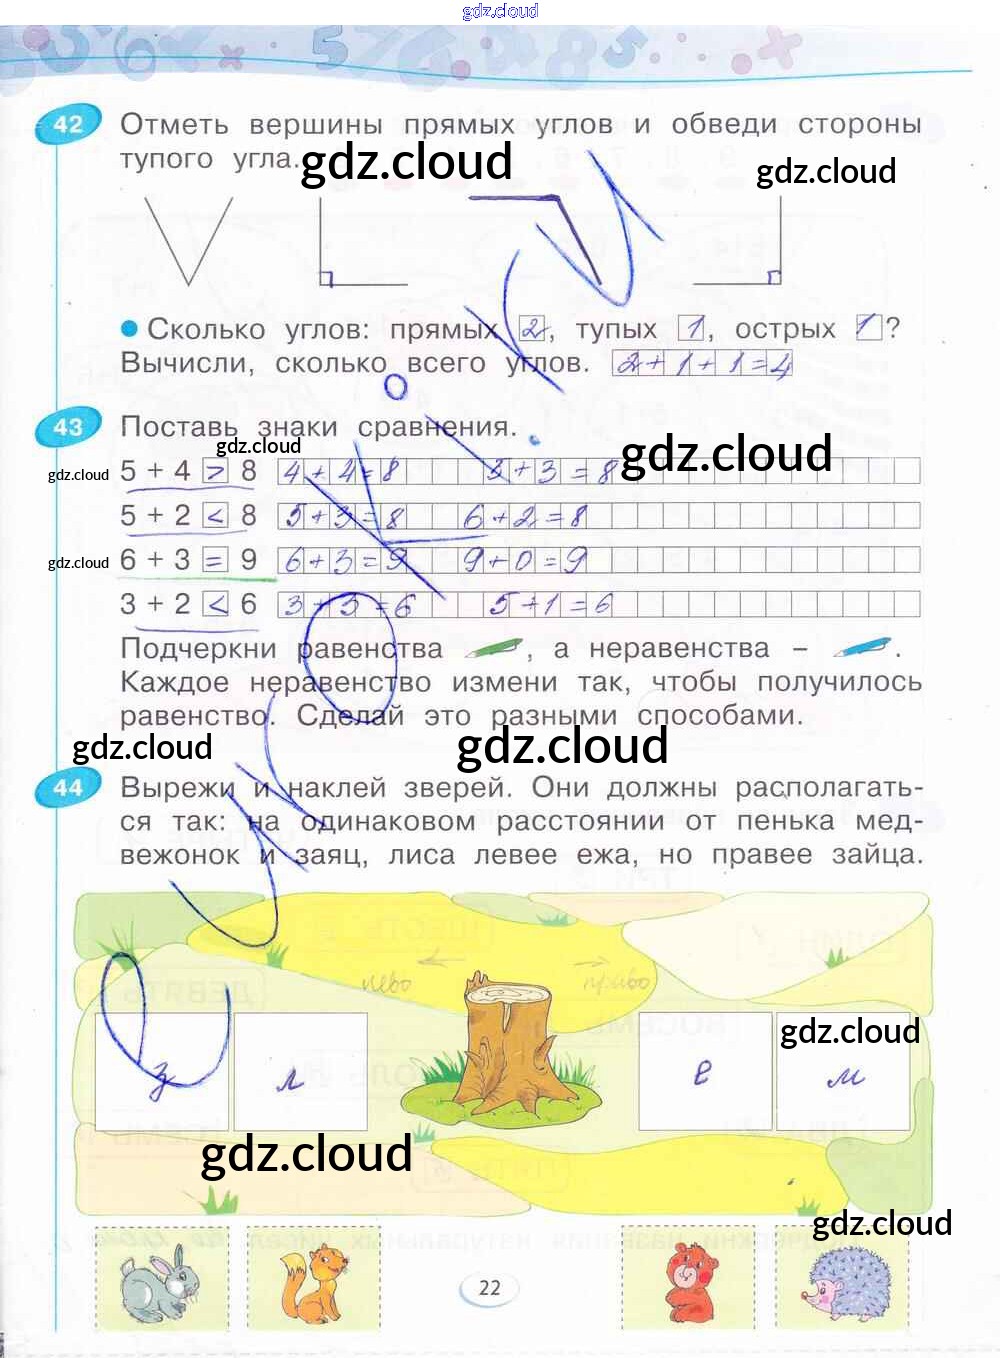 gdz.cloud
42 Отметь вершины прямых углов и обведи стороны
тупого угла.
gdz.cloud
gdz.cloud
Сколько углов: прямых 2, тупых 1, острых 1?
Вычисли, сколько всего углов. 2+1+1=4
43 Поставь знаки сравнения.
gdz.cloud
gdz.cloud
gdz.cloud
5 + 4 > 8 4+4=8 3+3=8
5 + 2 < 8 5+3=8 6+2=8
gdz.cloud
6 + 3 = 9 6+3=9 9+0=9
3 + 2 < 6 3+3=6 5+1=6
Подчеркни равенства , а неравенства – .
Каждое неравенство измени так, чтобы получилось
равенство. Сделай это разными способами.
gdz.cloud
gdz.cloud
44 Вырежи и наклей зверей. Они должны располагать-
ся так: на одинаковом расстоянии от пенька мед-
вежонок и заяц, лиса левее ежа, но правее зайца.
лево
право
gdz.cloud
з л е м
gdz.cloud
gdz.cloud
22